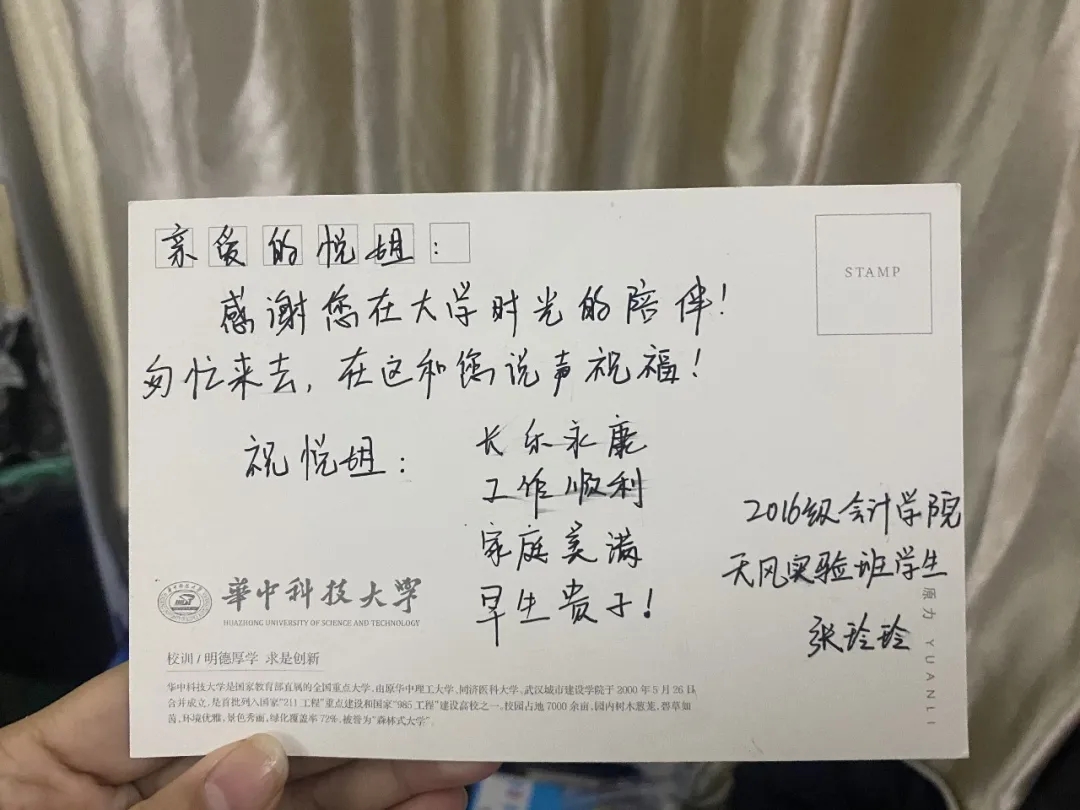 亲爱的悦姐：
STAMP
感谢您在大学时光的陪伴！
匆忙来去，在这和您说声祝福！
祝悦姐：
长乐永康
工作顺利
家庭美满
早生贵子！
2016级会计学院
天风实验班学生
张玲玲
華中科技大学
HUAZHONG UNIVERSITY OF SCIENCE AND TECHNOLOGY
校训/明德厚学 求是创新
华中科技大学是国家教育部直属的全国重点大学，由原华中理工大学、同济医科大学、武汉城市建设学院于2000年5月26日
合并成立，是首批列入国家"211工程"重点建设和国家"985工程"建设高校之一。校园占地7000余亩，园内树木葱茏，碧草如
茵，环境优雅，景色秀丽，绿化覆盖率72%，被誉为"森林式大学"。
原力 YUANLI